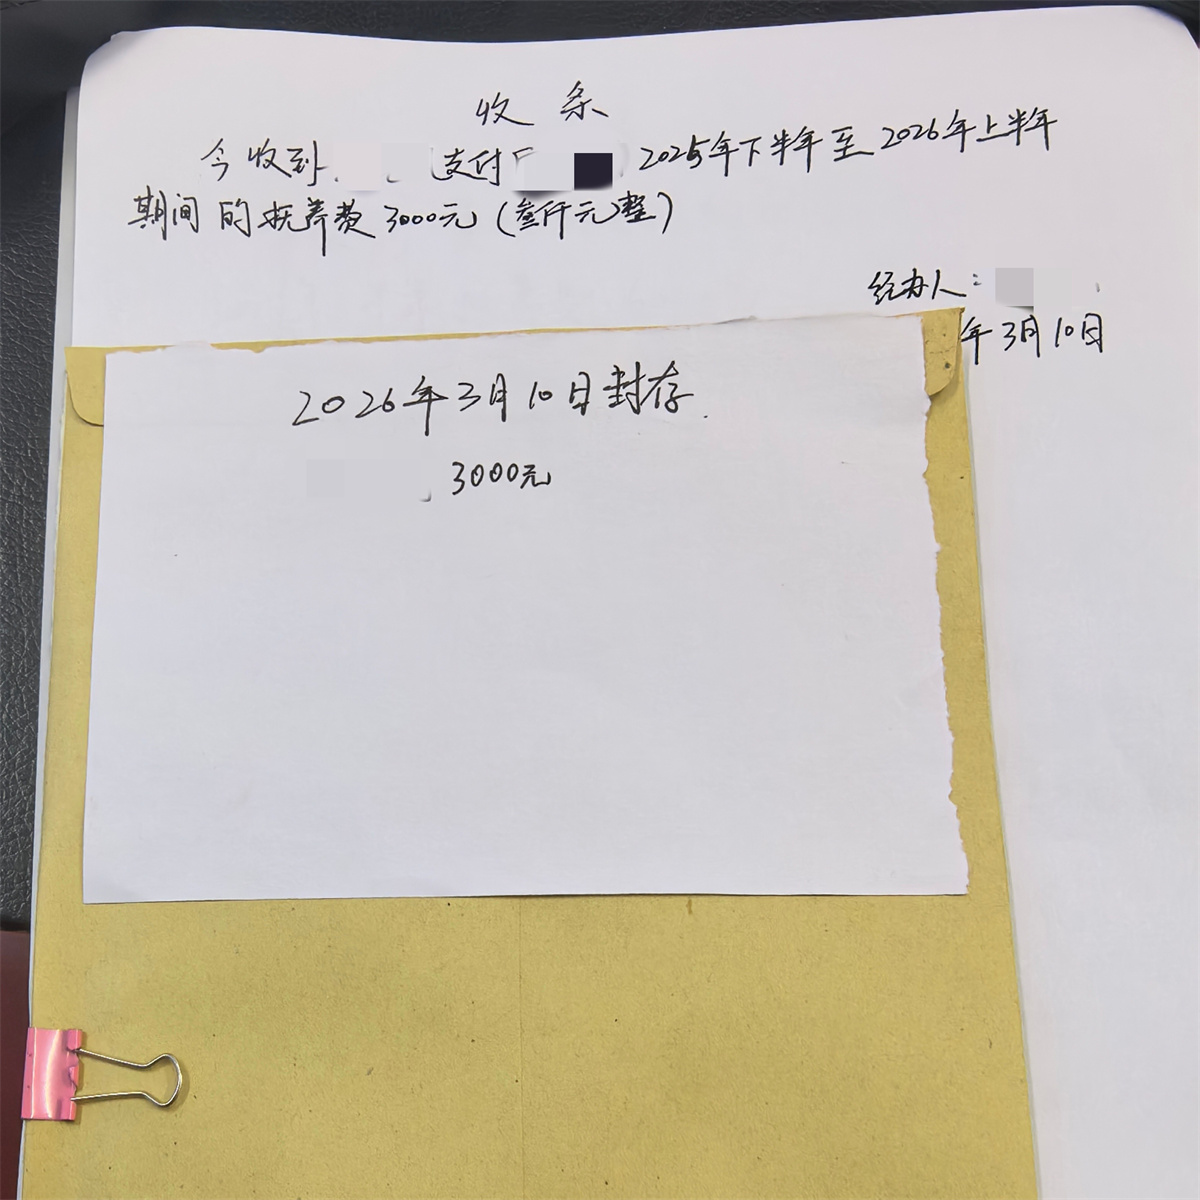 收条
今收到 支付 2025年下半年至2026年上半年
期间的抚养费3000元(叁仟元整)
经办人:
年3月10日
2026年3月10日封存.
3000元